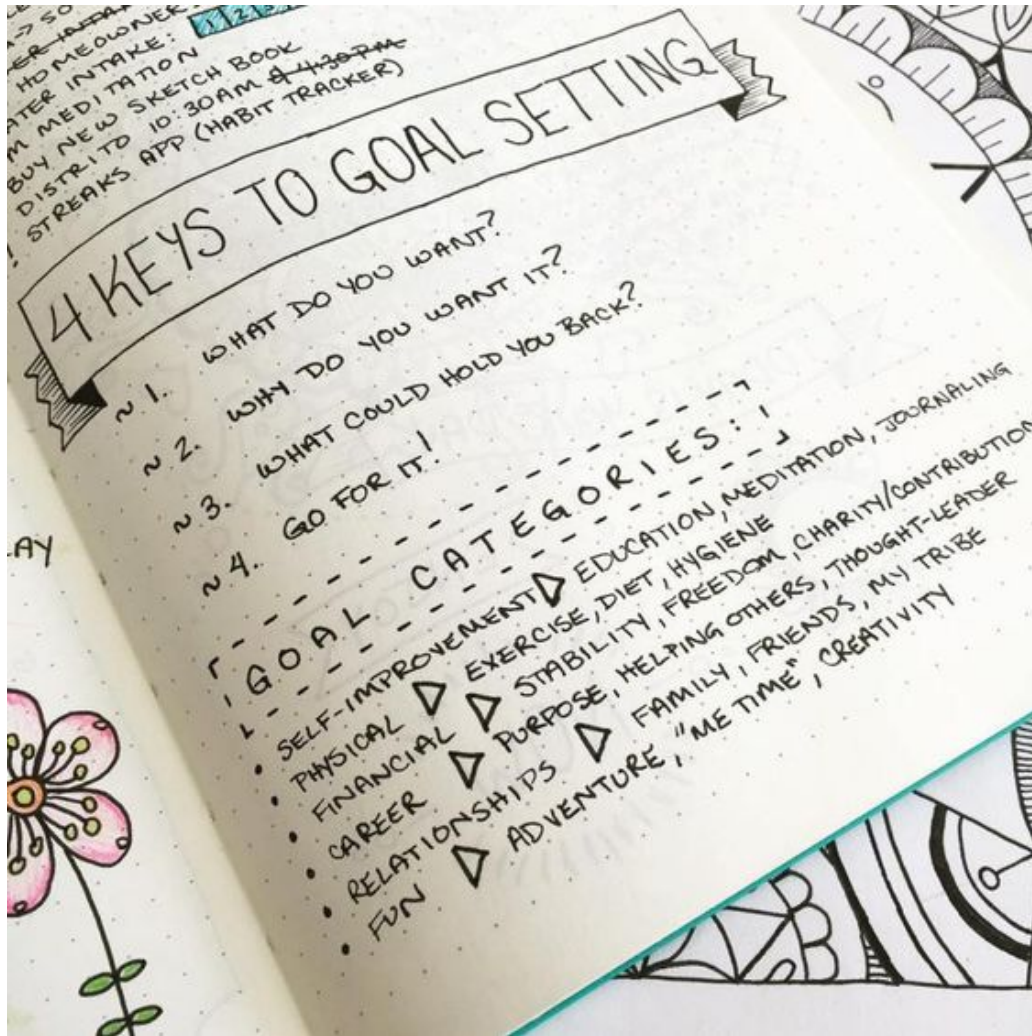 HOMEOWNER
INTAKE: 1 2 3
MEDITATION
BUY NEW SKETCH BOOK
DISTRITO 10:30AM & 4:30PM
STREAKS APP (HABIT TRACKER)
4 KEYS TO GOAL SETTING
~ 1. WHAT DO YOU WANT?
~ 2. WHY DO YOU WANT IT?
~ 3. WHAT COULD HOLD YOU BACK?
~ 4. GO FOR IT!
GOAL CATEGORIES:
• SELF-IMPROVEMENT ▷ EDUCATION, MEDITATION, JOURNALING
• PHYSICAL ▷ EXERCISE, DIET, HYGIENE
• FINANCIAL ▷ STABILITY, FREEDOM, CHARITY/CONTRIBUTION
• CAREER ▷ PURPOSE, HELPING OTHERS, THOUGHT-LEADER
• RELATIONSHIPS ▷ FAMILY, FRIENDS, MY TRIBE
• FUN ▷ ADVENTURE, "ME TIME", CREATIVITY